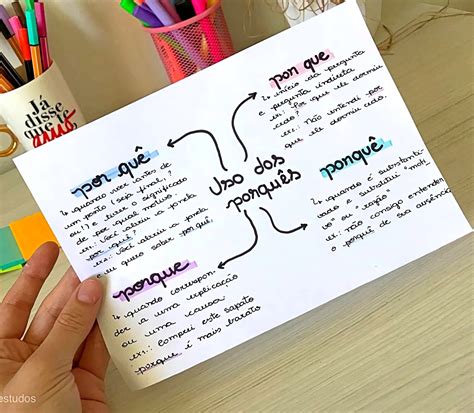 Já
disse
que te
amo
Uso dos
porquês
por quê
↳ quando vier antes de
um ponto (seja final, ?
ou !) e tiver o significado
de por qual motivo
ex1: Você abriu a janela
por quê?
ex2: Você abriu a janela
e eu quero saber por quê.
por que
↳ início da pergunta
e pergunta indireta
ex: Por que ele dormiu
cedo?
ex: Não entendi por
que ele dormiu cedo.
porque
↳ quando correspon-
der a uma explicação
ou uma causa
ex: Comprei este sapato
porque é mais barato
porquê
↳ quando é substanti-
vado e substitui "moti-
vo" ou "razão"
ex: não consigo entender
o porquê de sua ausência
estudos